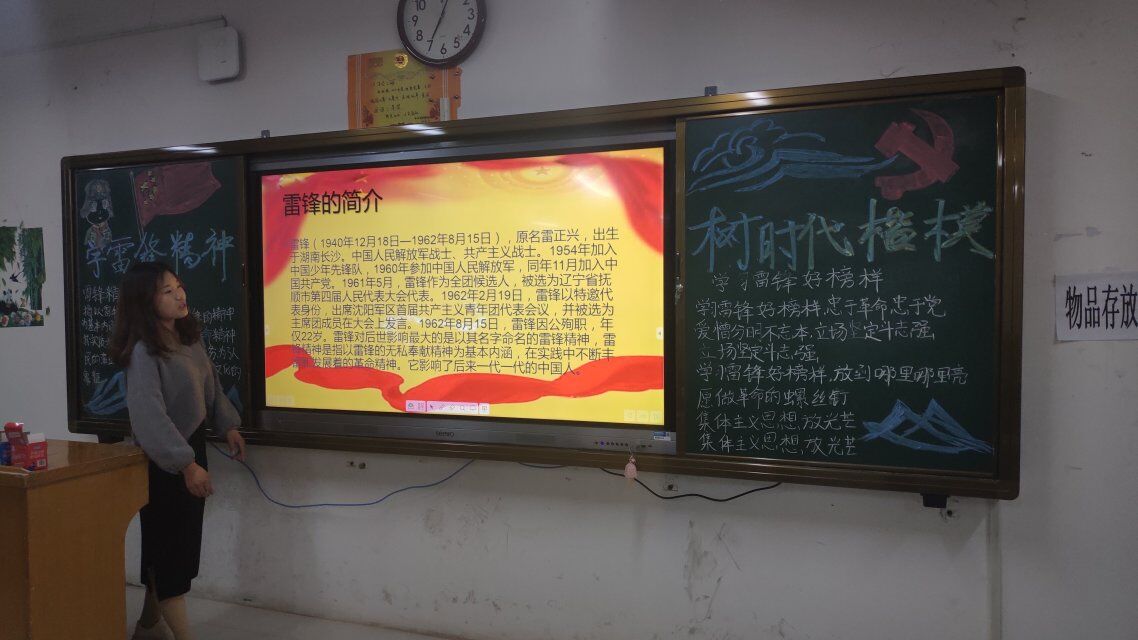 学雷锋精神
雷锋的简介
雷锋（1940年12月18日—1962年8月15日），原名雷正兴，出生
于湖南长沙。中国人民解放军战士、共产主义战士。1954年加入
中国少年先锋队，1960年参加中国人民解放军，同年11月加入中
国共产党。1961年5月，雷锋作为全团候选人，被选为辽宁省抚
顺市第四届人民代表大会代表。1962年2月19日，雷锋以特邀代
表身份，出席沈阳军区首届共产主义青年团代表会议，并被选为
主席团成员在大会上发言。1962年8月15日，雷锋因公殉职，年
仅22岁。雷锋对后世影响最大的是以其名字命名的雷锋精神，雷
锋精神是指以雷锋的无私奉献精神为基本内涵，在实践中不断丰
富和发展着的革命精神。它影响了后来一代一代的中国人。
树时代楷模
学习雷锋好榜样
学习雷锋好榜样,忠于革命忠于党
爱憎分明不忘本,立场坚定斗志强
立场坚定斗志强
学习雷锋好榜样,放到哪里哪里亮
愿做革命的螺丝钉
集体主义思想,放光芒
集体主义思想,放光芒
物品存放